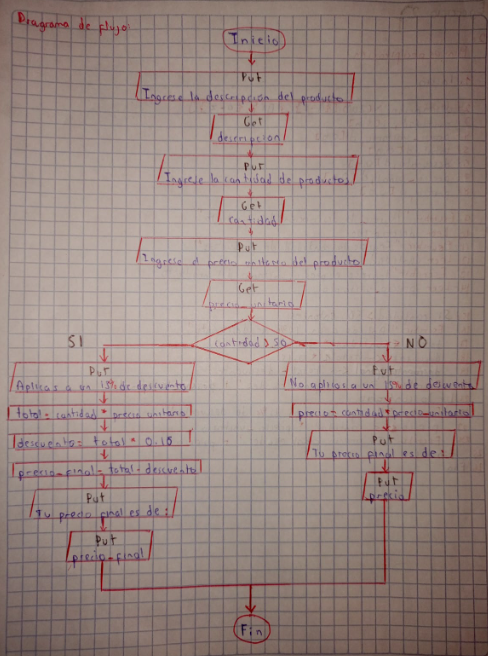 Diagrama de flujo:
Inicio
Put
Ingrese la descripcion del producto
Get
descripcion
Put
Ingrese la cantidad de productos
Get
cantidad
Put
Ingrese el precio unitario del producto
Get
precio_unitario
cantidad > 50
SI
NO
Put
Aplicas a un 15% de descuento
total = cantidad * precio unitario
descuento = total * 0.15
precio_final = total - descuento
Put
Tu precio final es de:
Put
precio_final
Put
No aplicas a un 15% de descuento
precio = cantidad * precio_unitario
Put
Tu precio final es de:
Put
precio
Fin